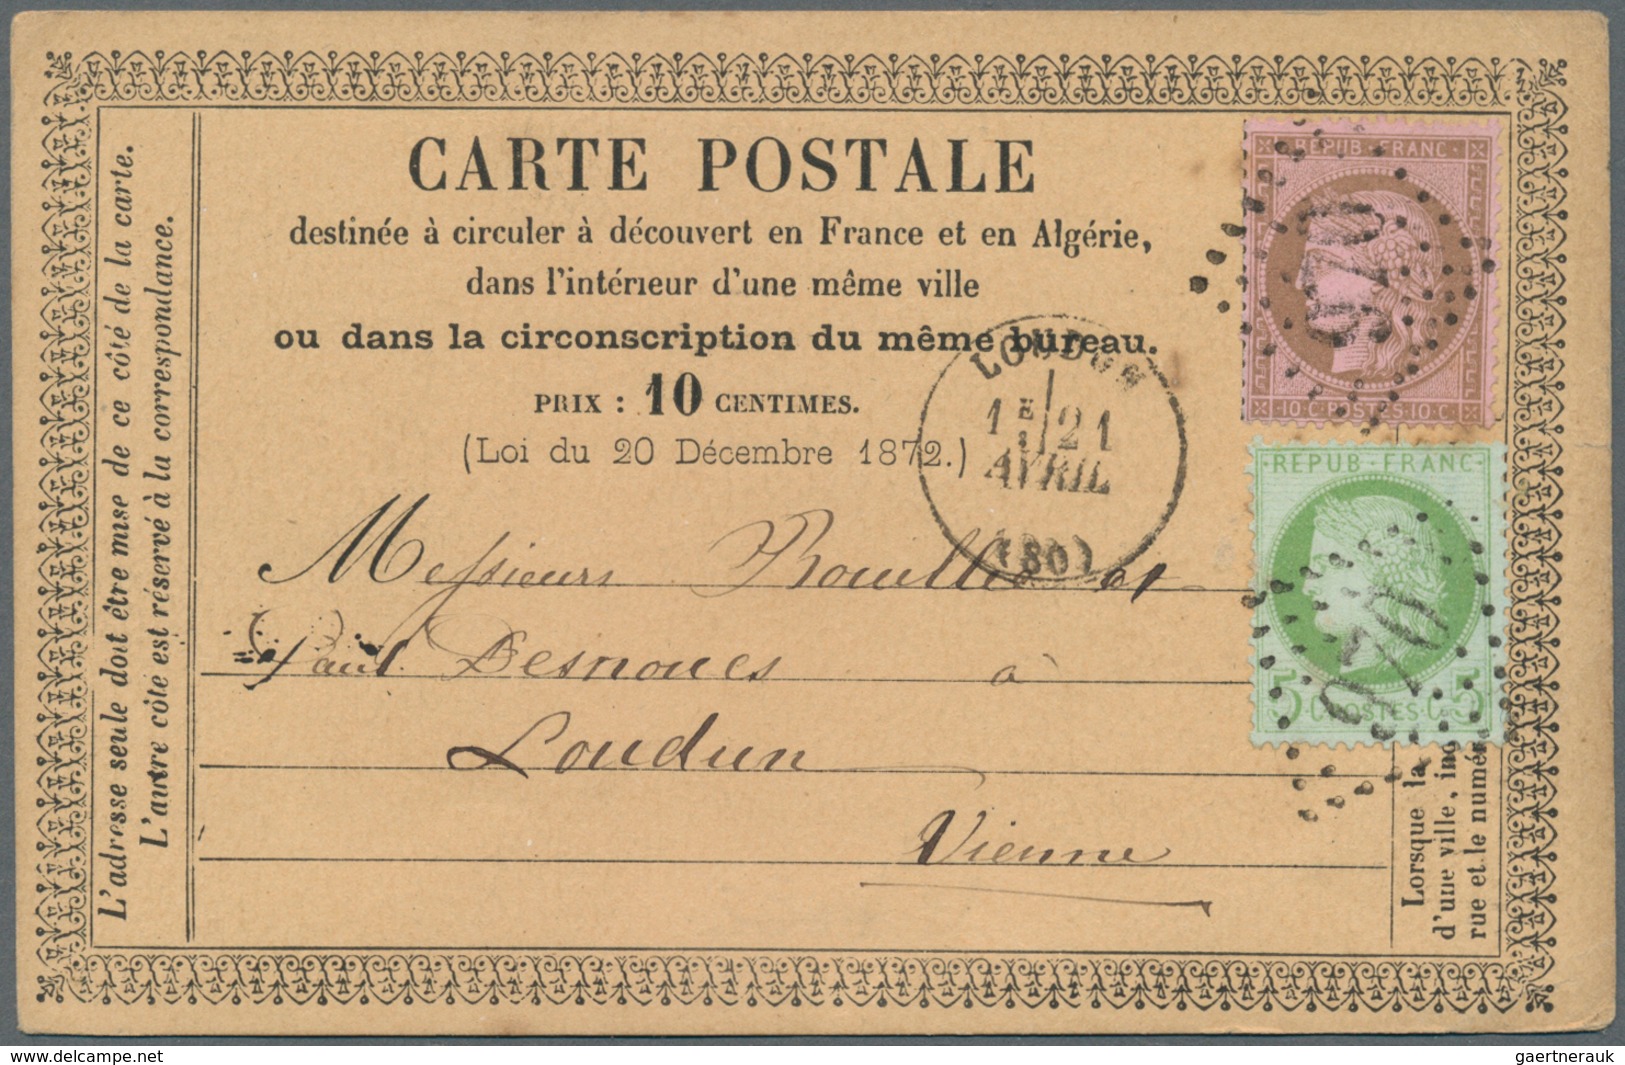 CARTE POSTALE
destinée à circuler à découvert en France et en Algérie,
dans l'intérieur d'une même ville
ou dans la circonscription du même bureau.
PRIX : 10 CENTIMES.
(Loi du 20 Décembre 1872.)
L'adresse seule doit être mise de ce côté de la carte.
L'autre côté est réservé à la correspondance.
REPUB · FRANC ·
10 · C · POSTES · 10 · C ·
· REPUB · FRANC ·
5 · C · POSTES · C · 5
LOUDUN
1E / 21
AVRIL
(80)
Messieurs
Paul Desnoues à
Loudun
Vienne
Lorsque la
d'une ville, in
rue et le numér
www.delcampe.net
gaertnerauk